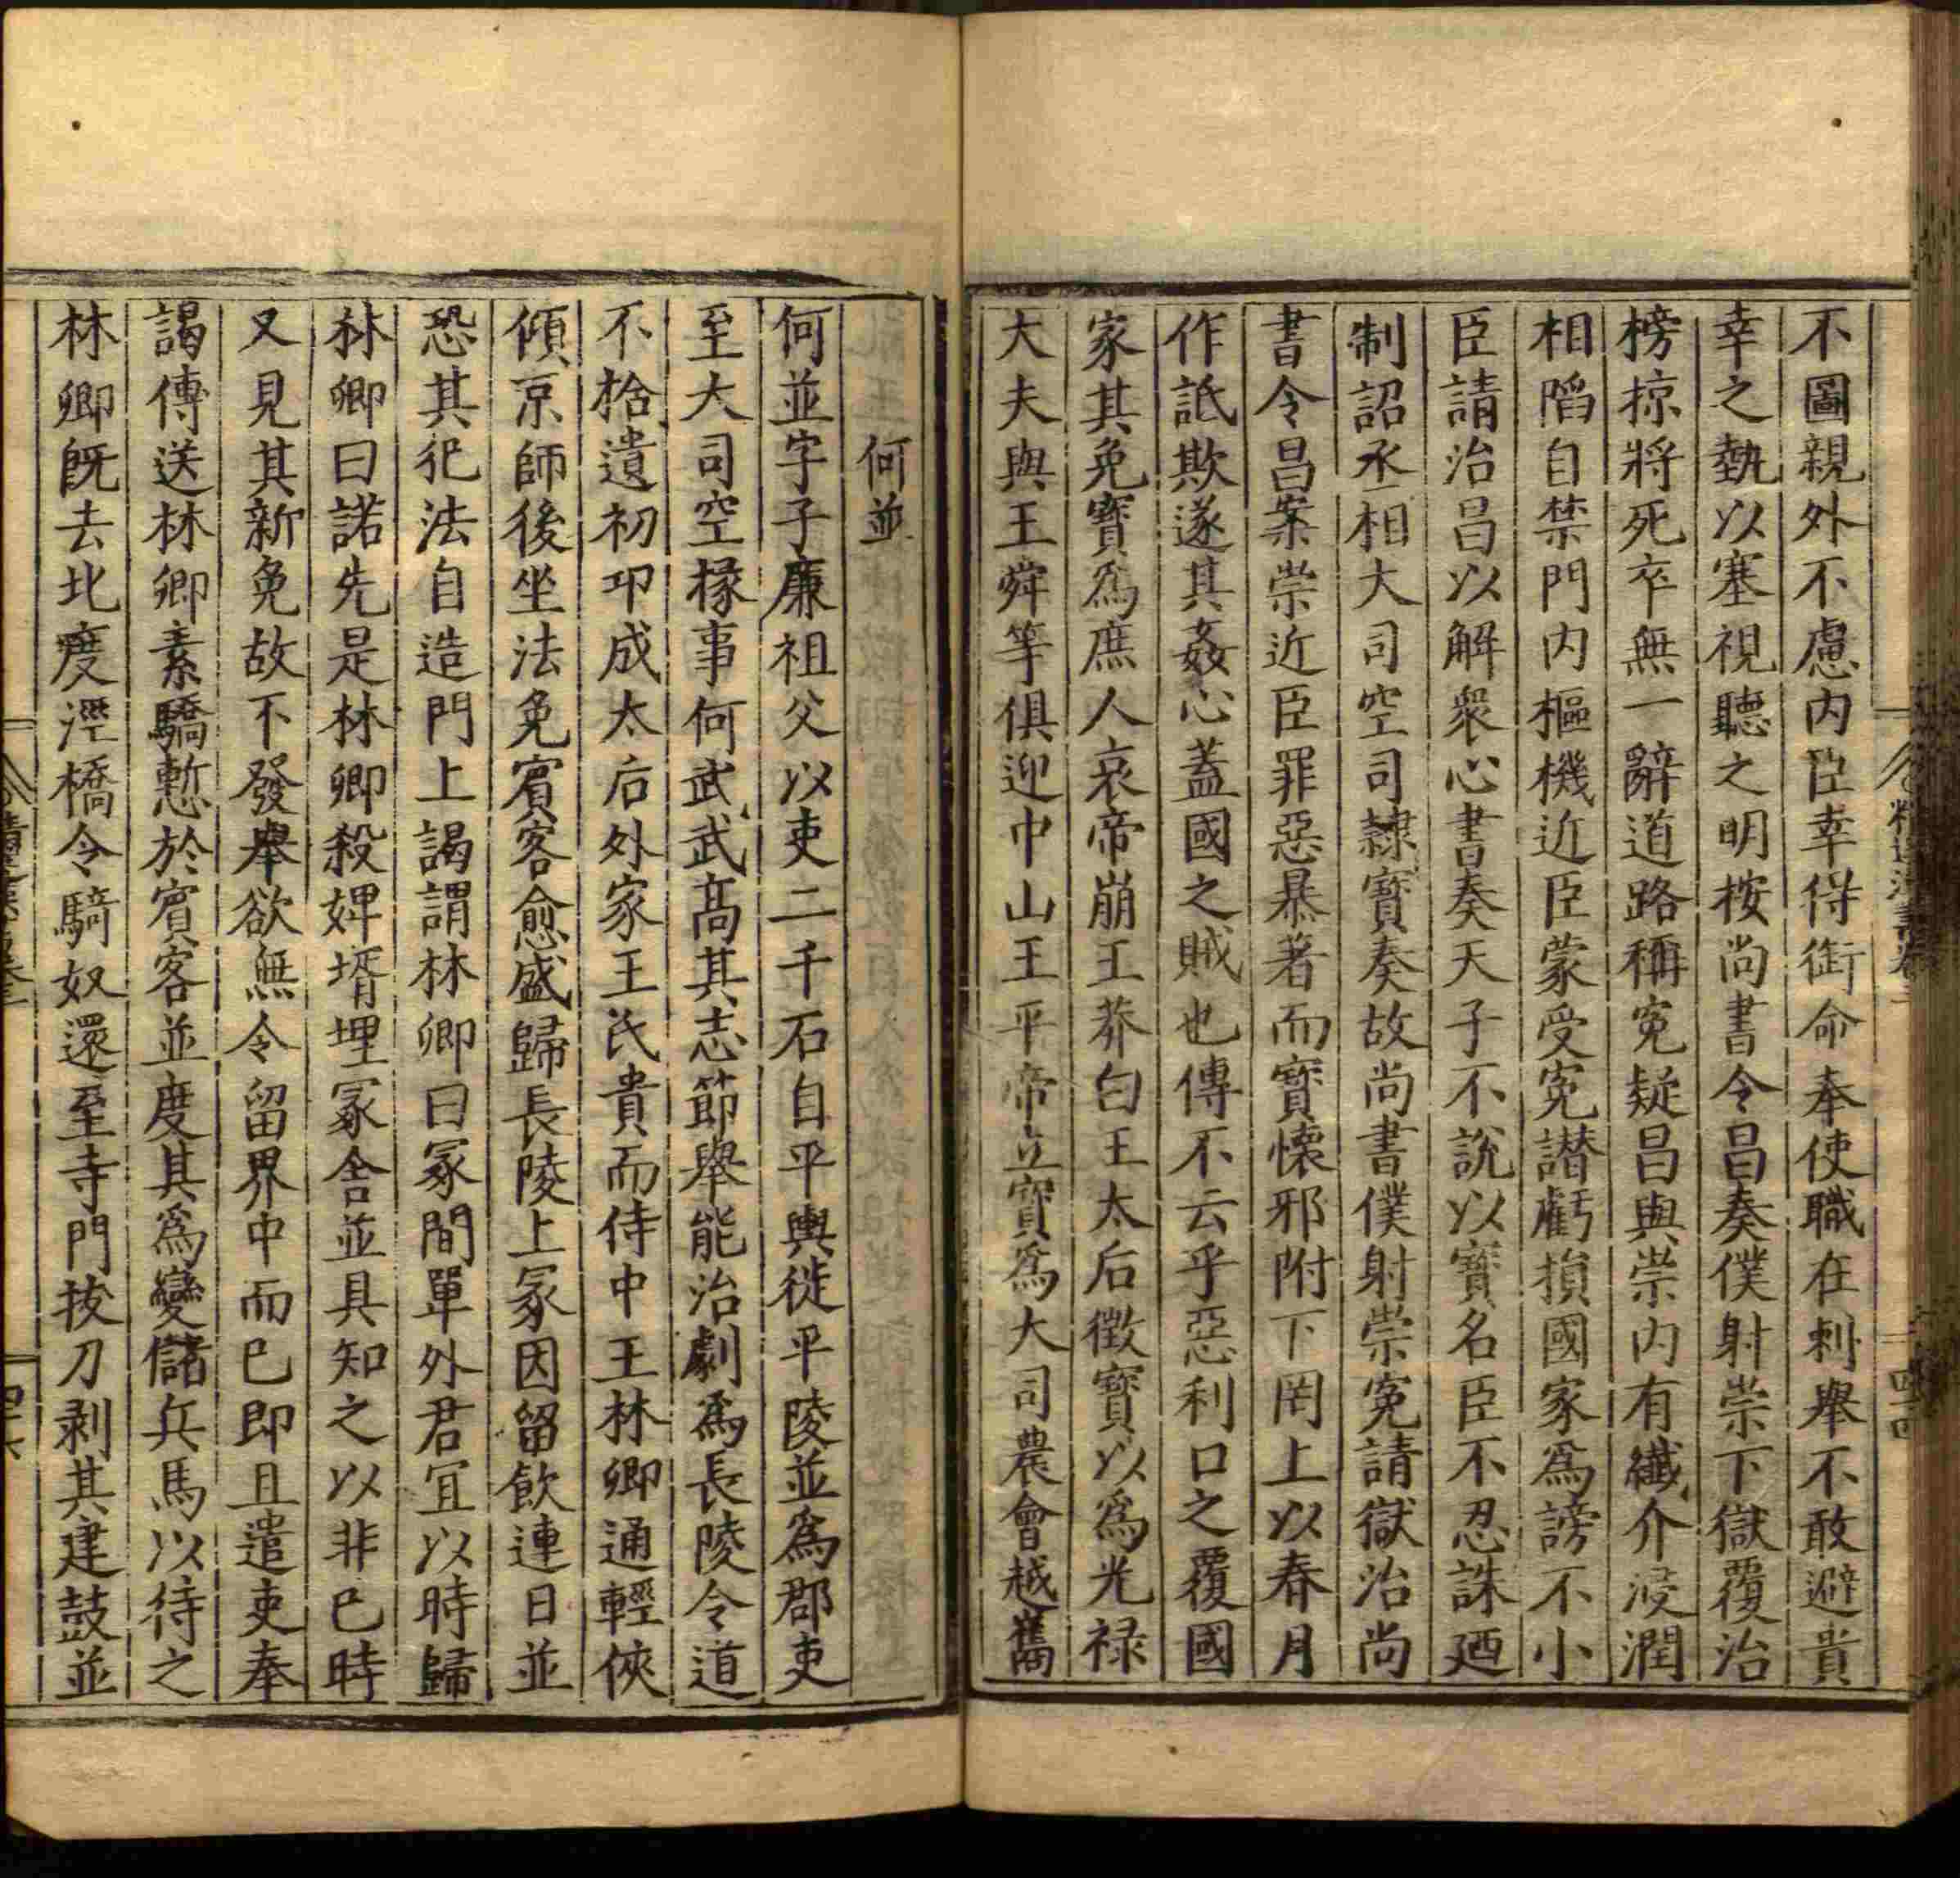 不圖親外不慮内臣幸得銜命奉使職在刺舉不敢避貴
幸之埶以塞視聽之明按尚書令昌奏僕射崇下獄覆治
榜掠將死卒無一辭道路稱寃疑昌與崇内有纖介浸潤
相陷自禁門内樞機近臣蒙受寃譖虧損國家爲謗不小
臣請治昌以解衆心書奏天子不說以寶名臣不忍誅廼
制詔丞相大司空司隷寶奏故尚書僕射崇寃請獄治尚
書令昌案崇近臣罪惡暴著而寶懷邪附下罔上以春月
作詆欺遂其姦心蓋國之賊也傳不云乎惡利口之覆國
家其免寶爲庶人哀帝崩王莽白王太后徵寶以爲光禄
大夫與王舜等俱迎中山王平帝立寶爲大司農會越嶲
何並
何並字子廉祖父以吏二千石自平輿徙平陵並爲郡吏
至大司空掾事何武武高其志節舉能治劇爲長陵令道
不拾遺初卭成太后外家王氏貴而侍中王林卿通輕俠
傾京師後坐法免賓客愈盛歸長陵上冢因留飲連日並
恐其犯法自造門上謁謂林卿曰冢間單外君宜以時歸
林卿曰諾先是林卿殺婢壻埋冢舍並具知之以非已時
又見其新免故不發舉欲無令留界中而已即且遣吏奉
謁傳送林卿素驕慙於賓客並度其爲變儲兵馬以待之
林卿旣去北度涇橋令騎奴還至寺門拔刀剥其建鼓並